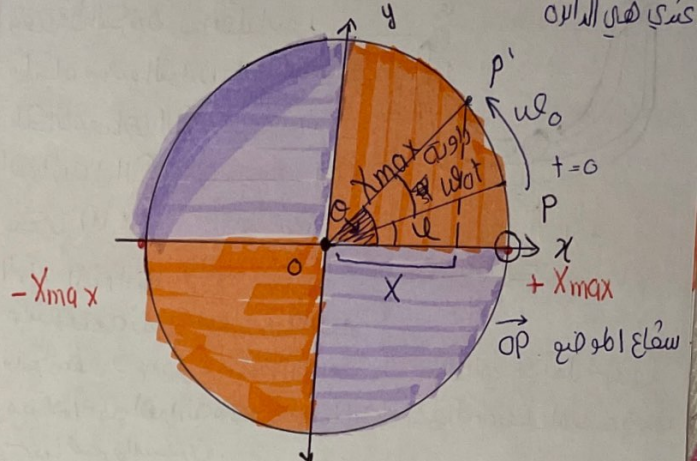 عندي هي الدائرة
y
P'
ω₀
Xmax
زاوية
t=0
ω₀t
θ
P
φ
O
x
X
-Xmax
+Xmax
شعاع الموضع OP